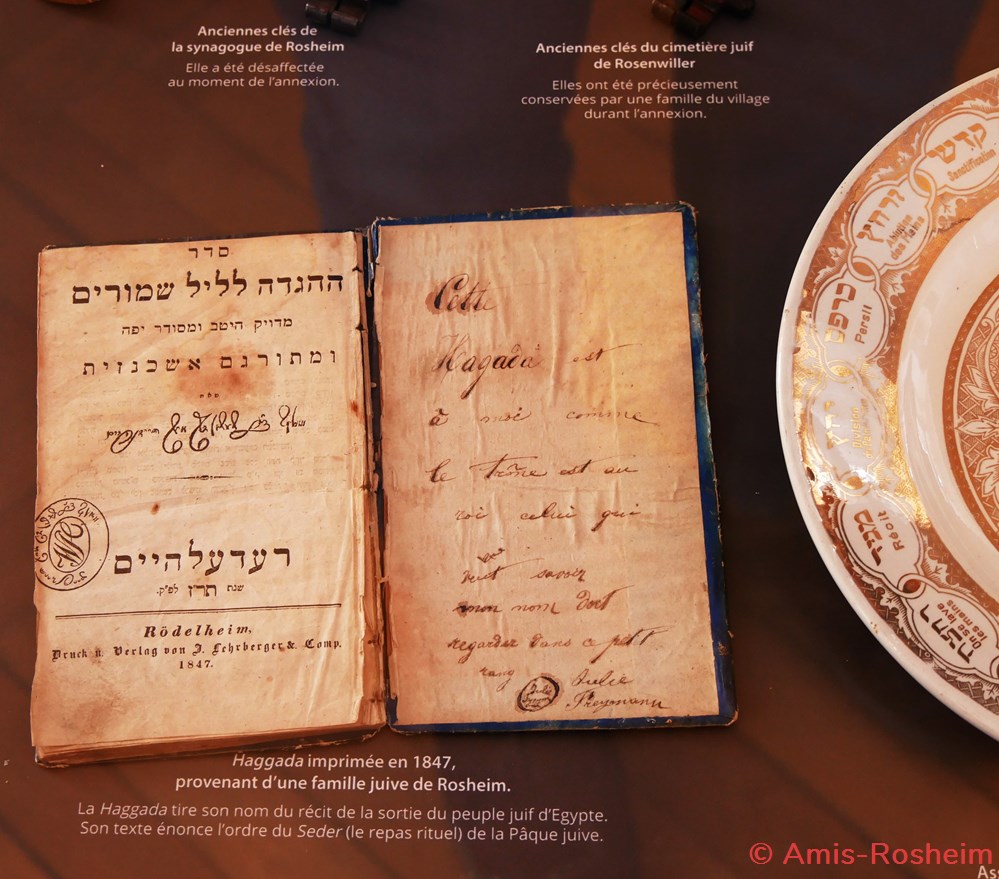 Anciennes clés de
la synagogue de Rosheim
Elle a été désaffectée
au moment de l'annexion.
Anciennes clés du cimetière juif
de Rosenwiller
Elles ont été précieusement
conservées par une famille du village
durant l'annexion.
סדר
ההגדה לליל שמורים
מדויק היטב ומסודר יפה
ומתורגם אשכנזית
רעדעלהיים
שנת תר"ז לפ"ק.
Rödelheim,
Druck u. Verlag von J. Lehrberger & Comp.
1847.
Cette
Hagada est
à moi comme
le trône est au
roi celui qui
veut savoir
mon nom doit
regarder dans ce petit
rang
Julie
Freymann
קדש
Sanctification
ורחץ
Ablution
des Mains
כרפס
Persil
יחץ
Division
מגיד
Récit
רחצה
On se lave
les mains
Haggada imprimée en 1847,
provenant d'une famille juive de Rosheim.
La Haggada tire son nom du récit de la sortie du peuple juif d'Egypte.
Son texte énonce l'ordre du Seder (le repas rituel) de la Pâque juive.
© Amis-Rosheim